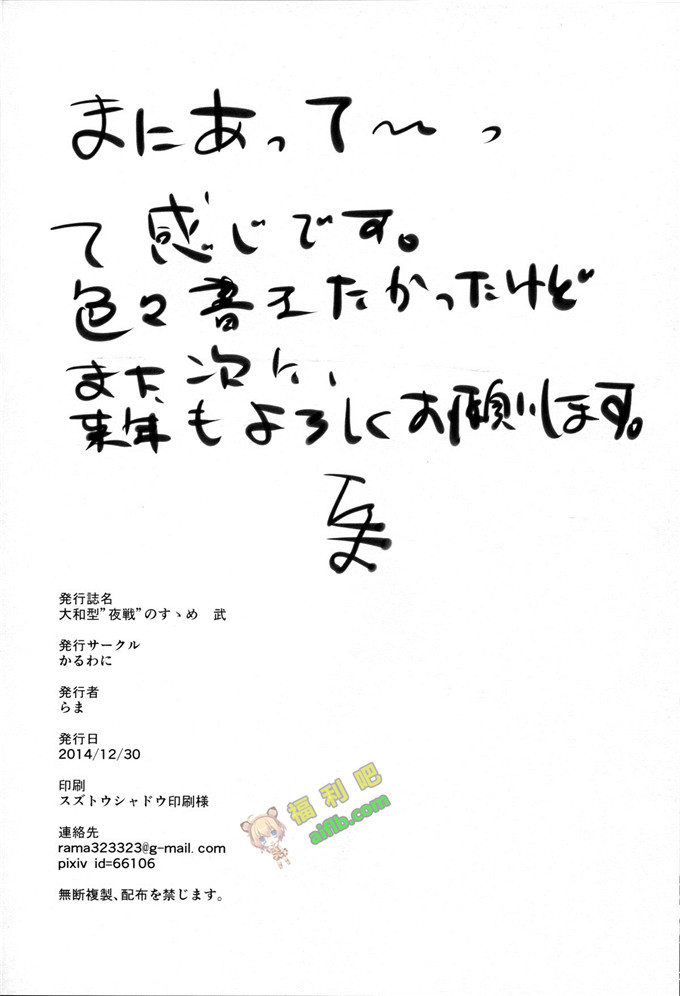 まにあって〜っ
て感じです。
色々書きたかったけど
また次に、
来年もよろしくお願いします。
発行誌名
大和型”夜戦”のすゝめ　武
発行サークル
かるわに
発行者
らま
発行日
2014/12/30
印刷
スズトウシャドウ印刷様
連絡先
rama323323@g-mail.com
pixiv id=66106
無断複製、配布を禁じます。
福利吧
aifib.com